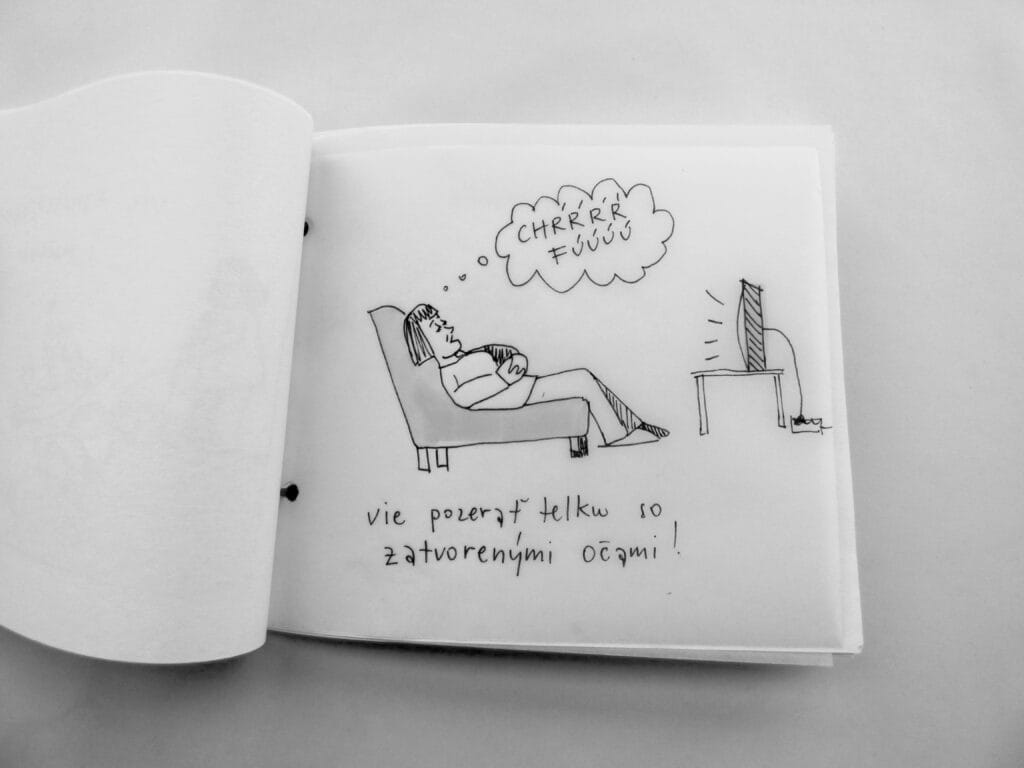 CHŔŔŔŔ
FÚÚÚÚ
vie pozerať telku so
zatvorenými očami!